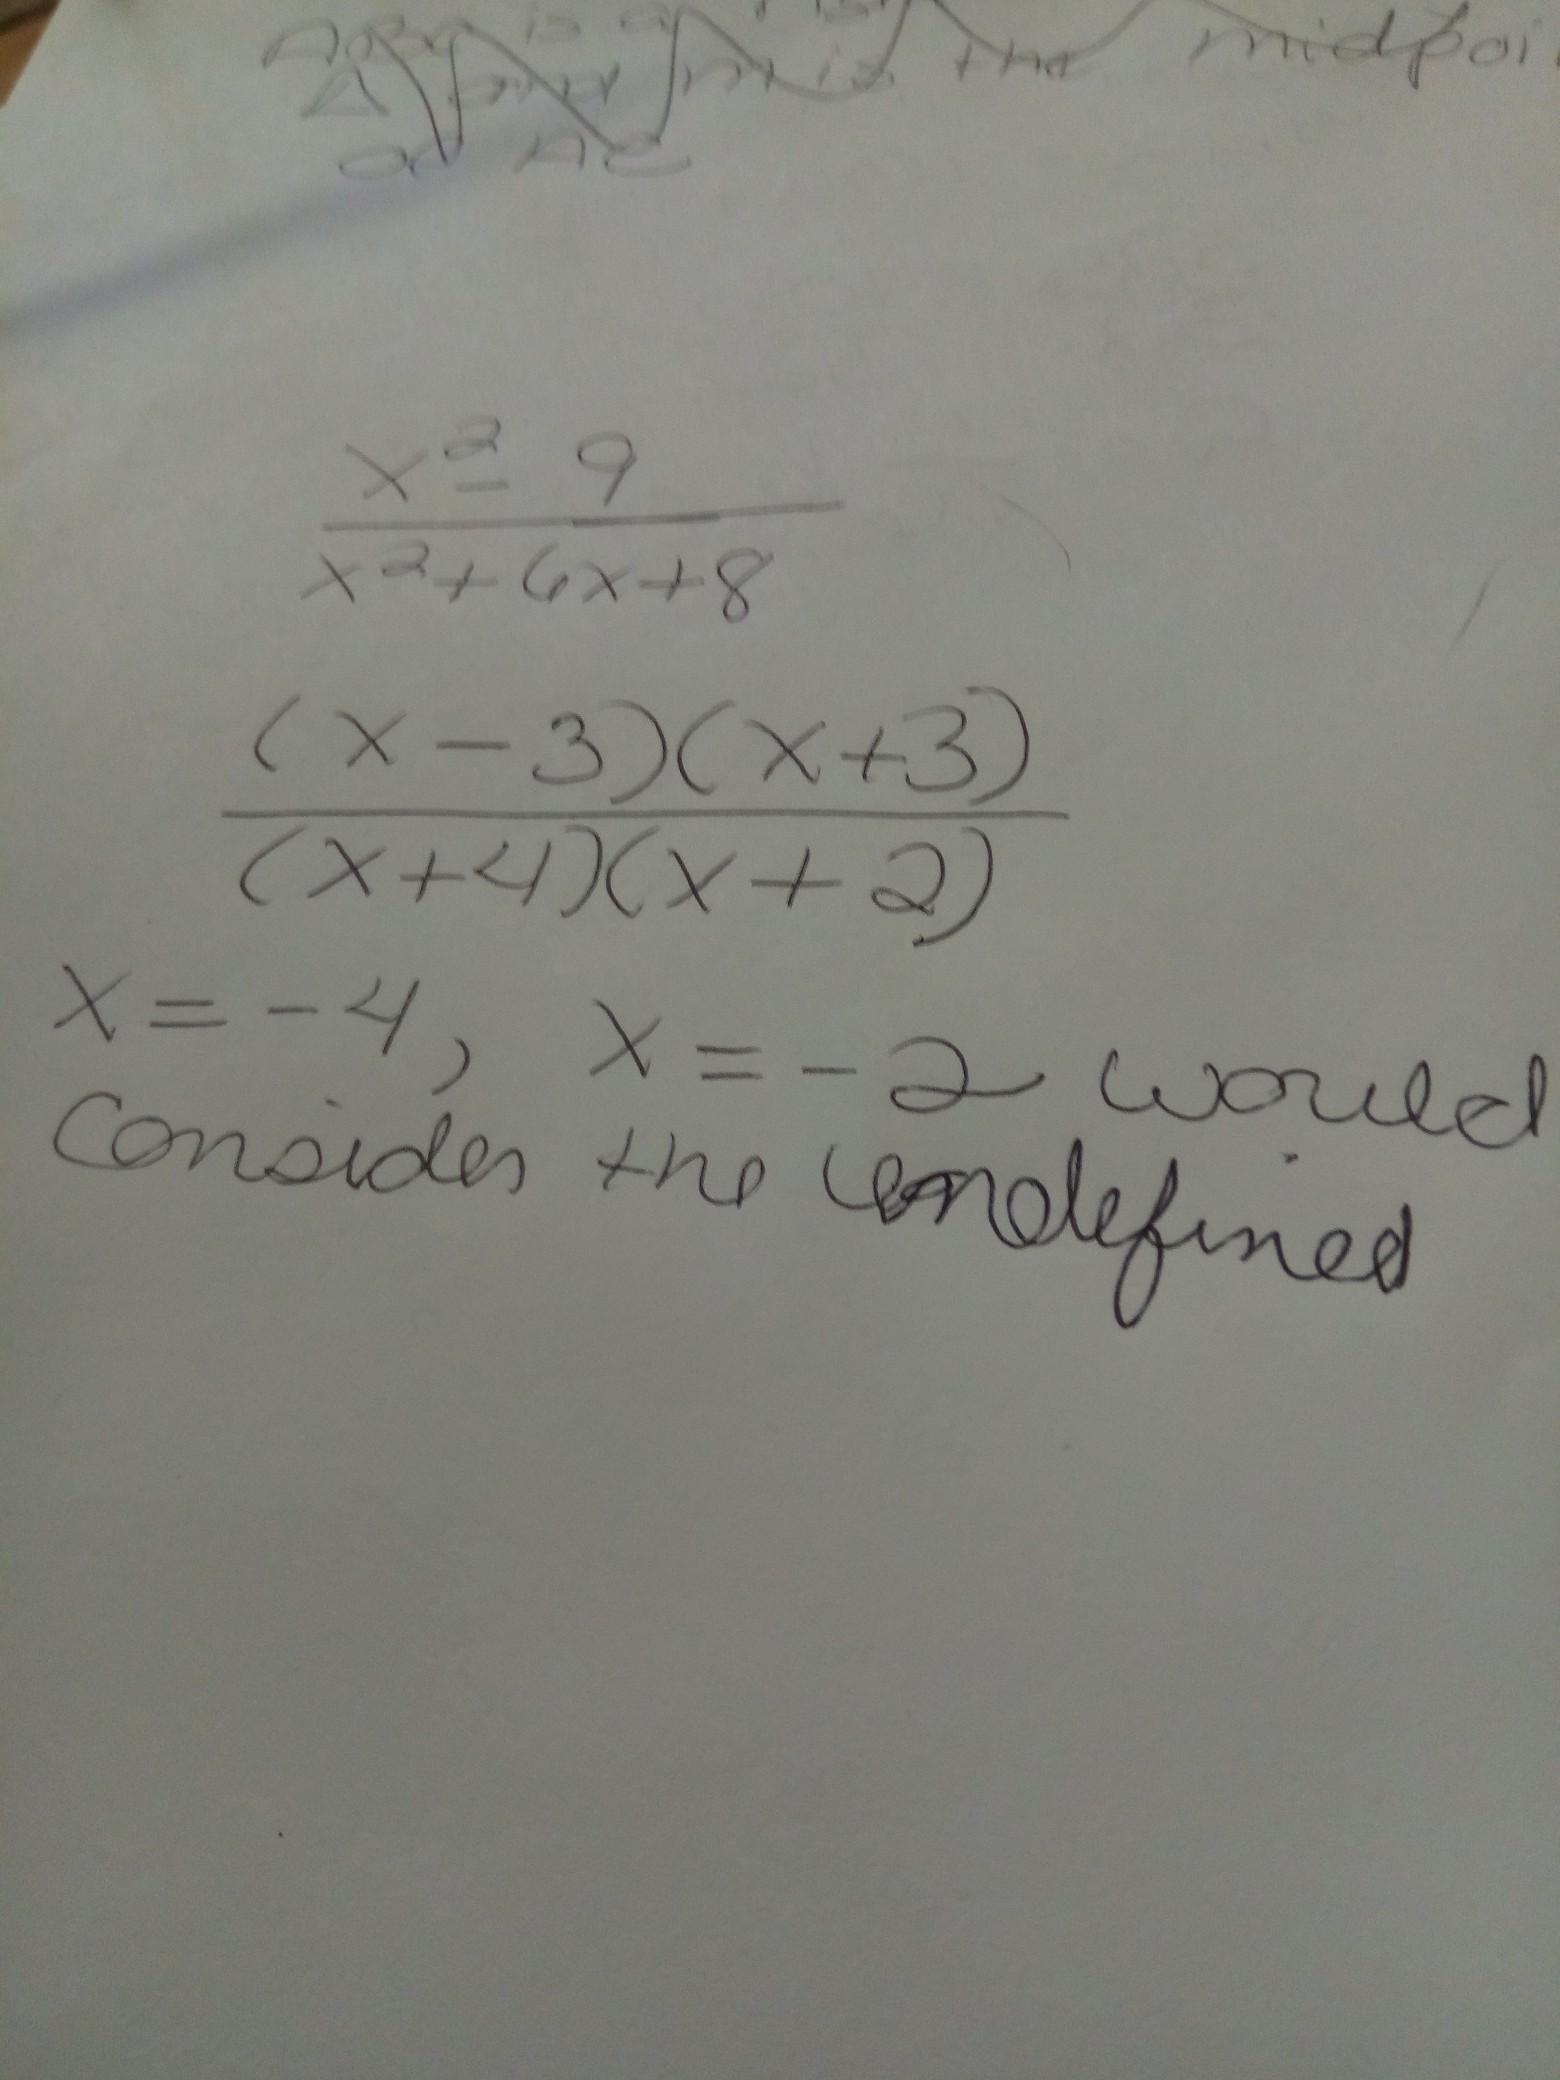 is the midpoi
x² - 9
x² + 6x + 8
(x - 3)(x + 3)
(x + 4)(x + 2)
x = -4, x = -2 would
consider the undefined